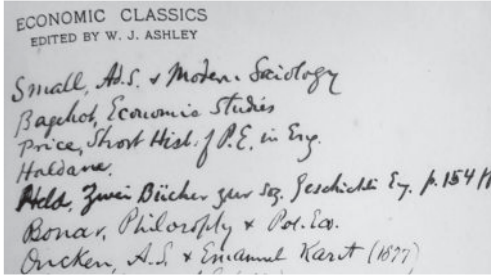 ECONOMIC CLASSICS
EDITED BY W. J. ASHLEY
Small, Ad.S. & Modern Sociology
Bagehot, Economic Studies
Price, Short Hist. of P.E. in Eng.
Haldane.
Held, Zwei Bücher zur soz. Geschichte Eng. p. 154
Bonar, Philosophy & Pol. Ec.
Oncken, A.S. & Emanuel Kant (1877)